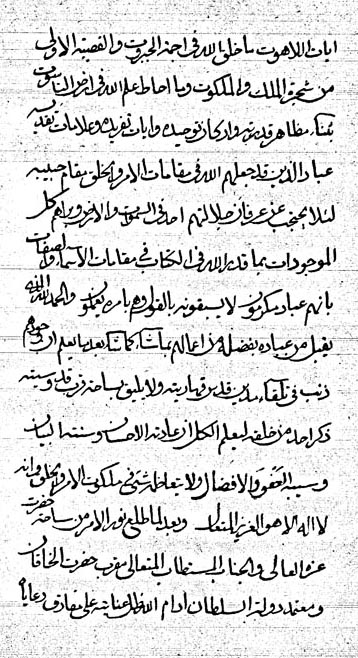 ايات اللاهوت ما خلق الله في اجمة الجبروت والقصبة الاولى
من شجرة الملك والملكوت وما احاط علم الله في ارض الناسوت
مظاهر قدرته واركان توحيده وايات تفريده وعلامات تقديسه
عباد الذين قد جعلهم الله في مقامات الامر والخلق مقام حبيبه
لئلا يحتجب عن عرفان جلالتهم احد في السموات والارض ويراهم كل
الموجودات بما قدر الله في الكتاب في مقامات الاسماء والصفات
بانهم عباد مكرمون لا يسبقونه بالقول وهم بامره يعملون والحمد لله الذي
يقبل من عباده بفضله من اعمالهم بما شاء كما شاء بعد ما يعلم ان وجودهم
ذنب في تلقاء مدين قدس قهاريته ولا يليق بساحة قرب قدوسيته
ذكر احد من خلقه ليعلم الكل ان عادته الاحسان وسنته البيان
وسبيله العفو والافضال ولا يتعاظمه شيء في ملكوت الامر والخلق وانه
لا اله الا هو العزيز المتعال وبعد لما طلع نور الامر من ساحة حضرت
عز العالي والجناب المستطاب المتعالي مقرب حضرت الخاقان
ومعتمد دولة السلطان ادام الله ظل عنايته على من رعاياه